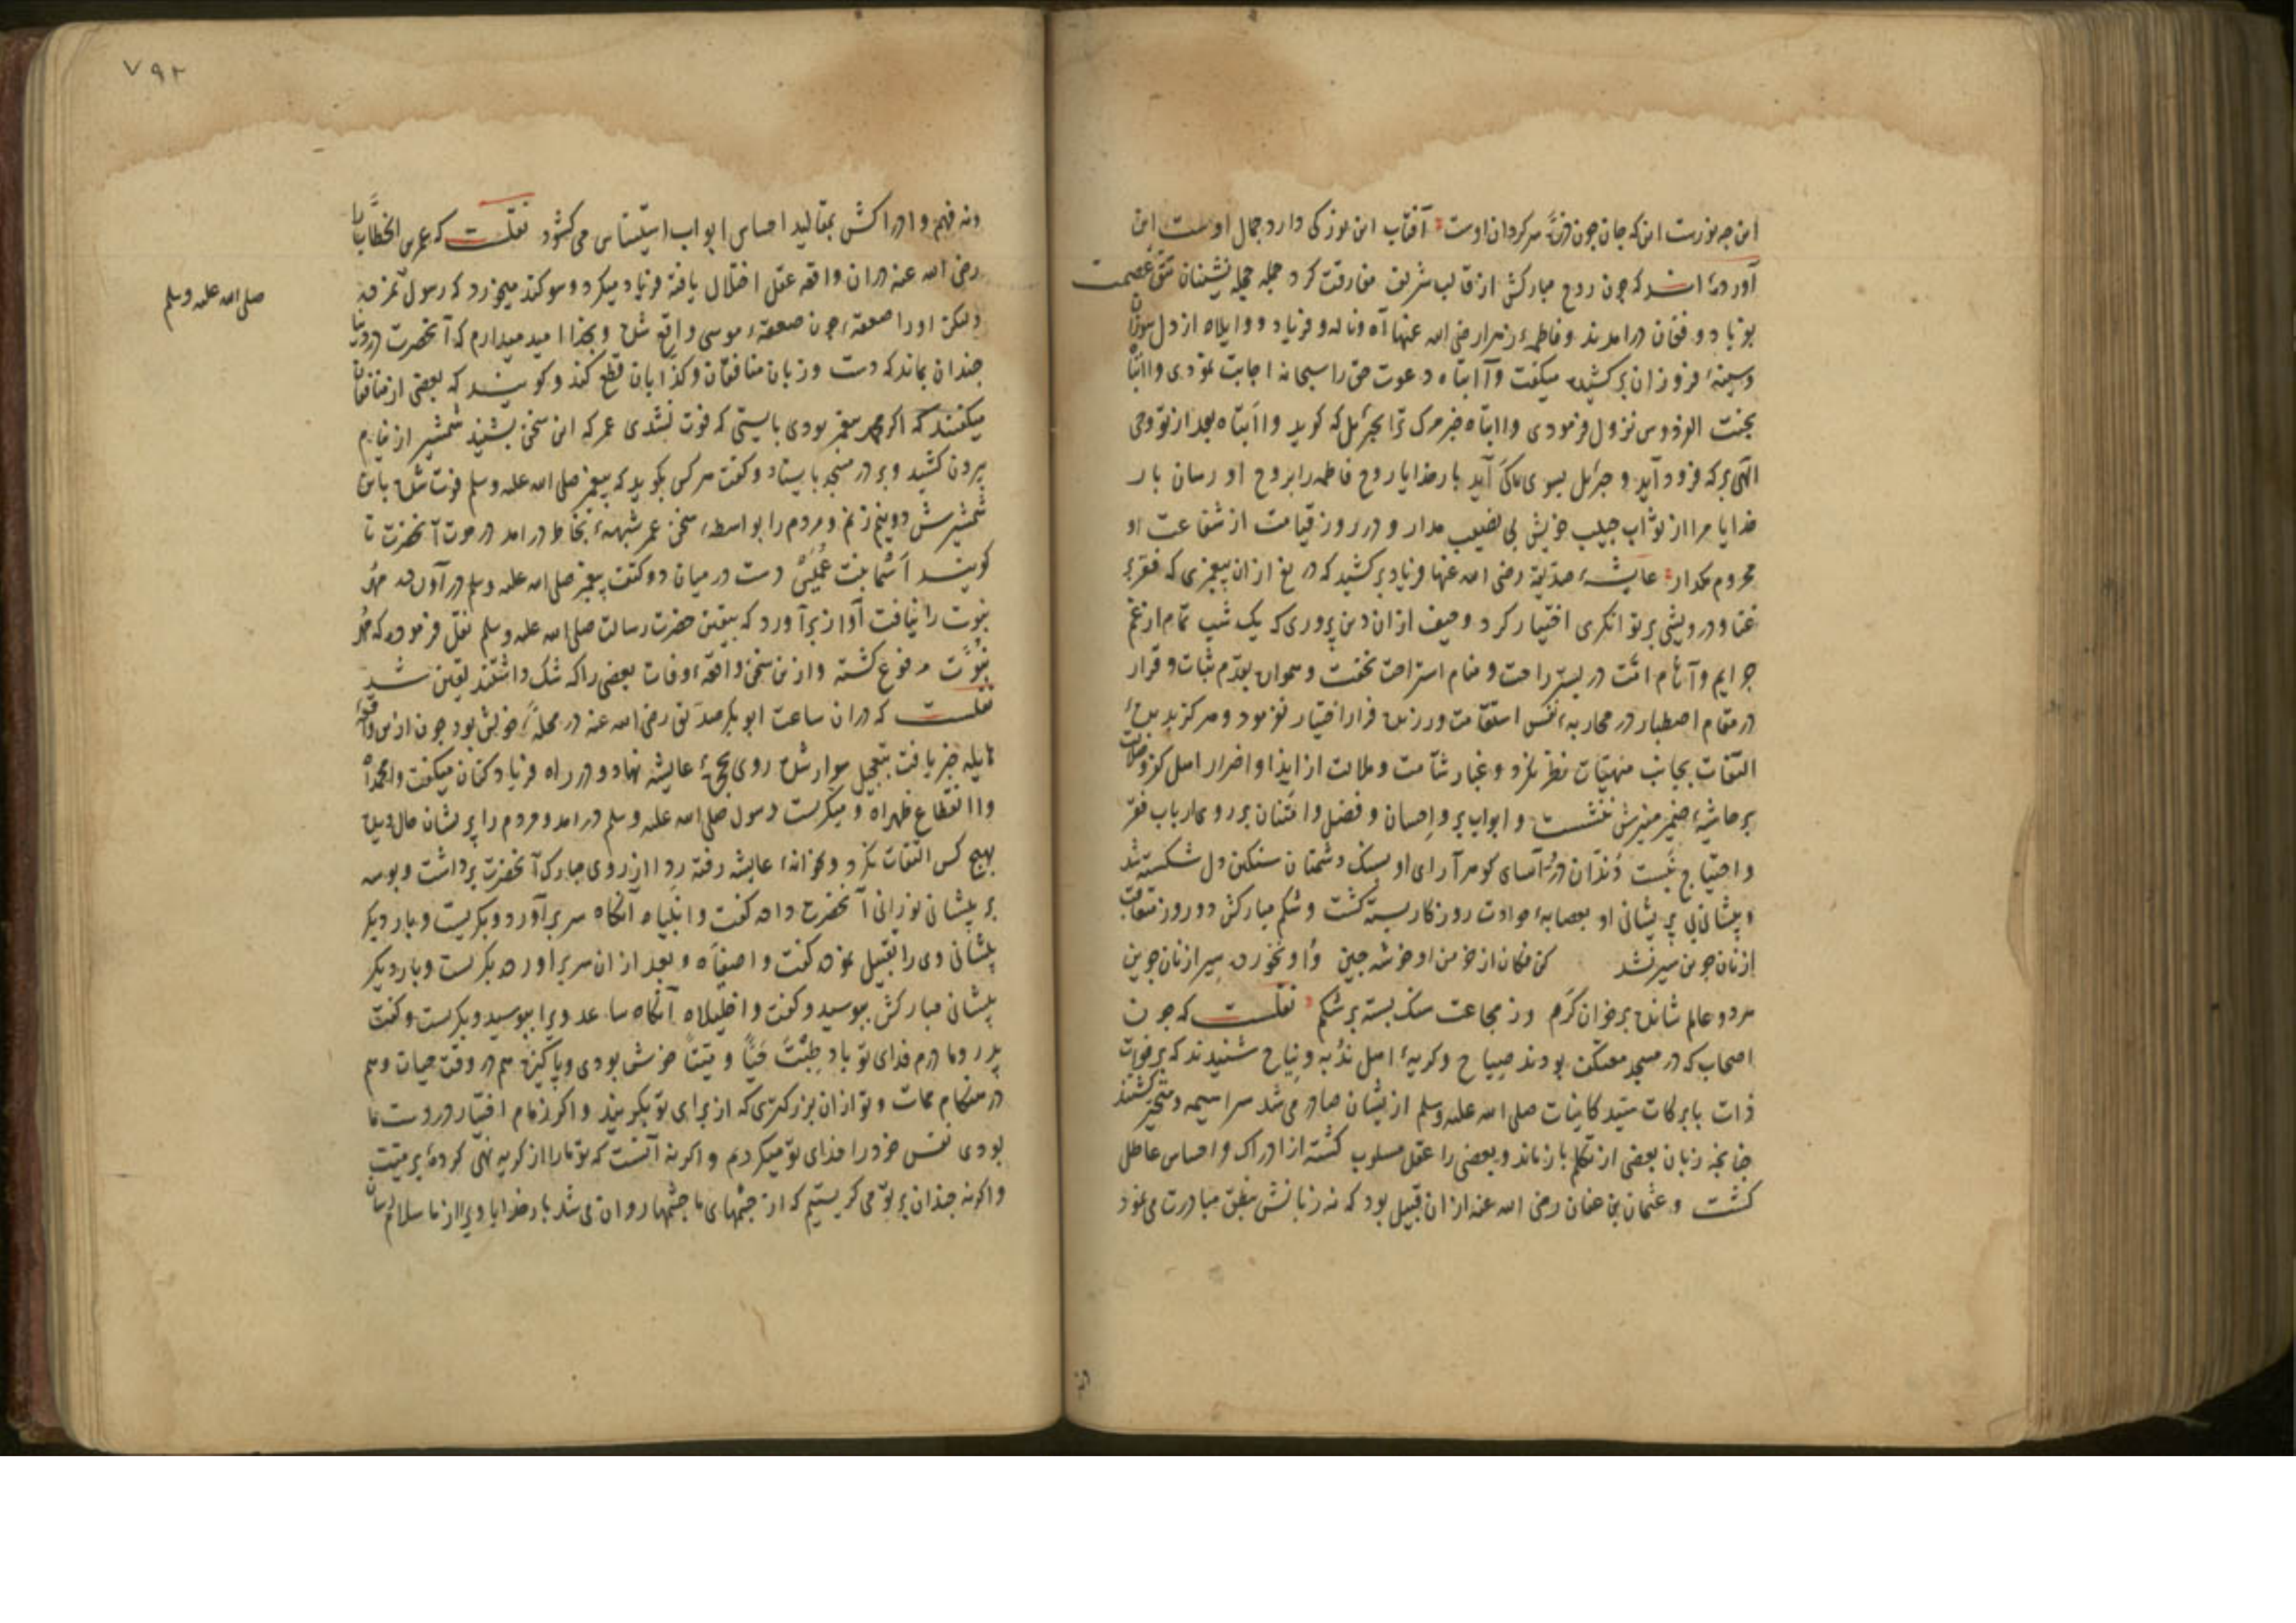 این چه نورست این که جان چون ذرّه سرگردان اوست آفتاب این نور کی دارد جمال اوست این
آورده‌اند که چون روح مبارکش از قالب شریف مفارقت کرد جمله حجله نشینان تتق عصمت
بفریاد و فغان درامدند و فاطمهٔ زهرا رضی الله عنها آه و ناله و فریاد و واویلاه از دل سوزان
و سینهٔ فروزان برکشیده میگفت وا ابتاه دعوت حق را سبحانه اجابت نمودی وا ابتاه
بجنت الفردوس نزول فرمودی وا ابتاه خبر مرک ترا بجبرئیل که گوید وا ابتاه بعد از تو وحی
الهی بر که فرود آید و جبرئیل بسوی کی آید بار خدایا روح فاطمه را بروح او رسان بار
خدایا مرا از ثواب حبیب خویش بی نصیب مدار و در روز قیامت از شفاعت او
محروم مگذار عایشهٔ صدّیقه رضی الله عنها فریاد برکشید که دریغ از ان پیغمبری که فقر بر
غنا و درویشی بر توانگری اختیار کرد و حیف از ان دین پروری که یک شب تمام از غم
جرایم و آثام امّت در بستر راحت و منام استراحت نخفت و همواره بقدم ثبات و قرار
در مقام اصطبار در محاربهٔ نفس استقامت ورزیده فرار اختیار نفرمود و هرگز بدیدهٔ
التفات بجانب منهیّات نظر نکرد و غبار شآمت و ملالت از ایذا و اضرار اهل کفر و ضلالت
بر حاشیهٔ ضمیر منیرش ننشست و ابواب بر و احسان و فضل و امتنان بر روی ارباب فقر
و احتیاج نبست دندان درّ آسای گوهر آرای او بسنک دشمنان سنگین دل شکسته شد
و پیشانی بی پریشانی او بعصابهٔ حوادث روزکار بسته گشت و شکم مبارکش دو روز متعاقب
از نان جوین سیر نشد کن فکان از خرمن او خوشه چین و او نخورده سیر از نان جوین
هر دو عالم شانده بر خوان کرم وز مجاعت سنک بسته بر شکم نقلست که چون
اصحاب که در مسجد معتکف بودند صیاح و گریهٔ اهل ندبه و نیاح شنیدند که بر فوات
ذات بابرکات سیّد کاینات صلی الله علیه وسلم ازیشان صادر می شد سراسیمه و متحیر گشتند
چنانچه زبان بعضی از تکلم بازماند و بعضی را عقل مسلوب گشته از ادراک و احساس عاطل
گشت و عثمان بن عفان رضی الله عنه از ان قبیل بود که نه زبانش بنطق مبادرت می نمود
۷۹۲
و نه فهم و ادراکش بمقالید احساس ابواب استیناس می گشود نقلست که عمر بن الخطاب را
رضی الله عنه دران واقعه عقل اختلال یافته فریاد میکرد و سوکند میخورد که رسول نمرده
صلی الله علیه وسلم
ولیکن او را صعقهٔ چون صعقهٔ موسی واقع شده و بخدا امید میدارم که آنحضرت در دنیا
چندان بماند که دست و زبان منافقان و کذابان قطع کند و گویند که بعضی از منافقان
میگفتند که اگر محمد پیغمبر بودی بایستی که فوت نشدی عمر که این سخن بشنید شمشیر از نیام
بیرون کشید و بر در مسجد بایستاد و گفت هر کس بگوید که پیغمبر صلی الله علیه وسلم فوت شده باین
شمشیرش دو نیم زنم و مردم را بواسطهٔ سخن عمر شبههٔ بخاطر درامد در موت آنحضرت تا
گویند اسما بنت عمیس دست در میان دو کتف پیغمبر صلی الله علیه وسلم درآورده مهر
نبوت را نیافت آواز برآورد که بیقین حضرت رسالت صلی الله علیه وسلم نقل فرموده که مهر
نبوّت مرفوع گشته و ازین سخن واقعهٔ وفات بعضی را که شک داشتند یقین شد
نقلست که دران ساعت ابوبکر صدّیق رضی الله عنه در محلهٔ خویش بود چون ازین واقعهٔ
هایله خبر یافت بتعجیل سوار شده روی بحجرهٔ عایشه نهاد و در راه فریاد کنان میگفت وا محمداه
وا انقطاع ظهراه و میگریست رسول صلی الله علیه وسلم درامد و مردم را پریشان حال دیده
بهیچ کس التفات نکرد و بخانهٔ عایشه رفته ردا از روی مبارک آنحضرت برداشت و بوسه
بر پیشانی نورانی آنحضرت داده گفت وا نبیاه آنگاه سر برآورد و بگریست و بار دیگر
پیشانی وی را تقبیل نموده گفت وا صفیّاه و بعد از ان سر براورده بگریست و بار دیگر
پیشانی مبارکش ببوسید و گفت وا خلیلاه آنگاه ساعد ویرا ببوسید و بگریست و گفت
پدر و مادرم فدای تو باد طبت حیّاً و میّتاً خوش بودی و پاکیزه هم در وقت حیات و هم
در هنگام ممات و تو از ان بزرگتری که از برای تو بگویند و اگر زمام اختیار در دست ما
بودی نفس خود را فدای تو میکردیم و اگر نه آنست که تو ما را از گریه نهی کردهٔ بر میّت
و اگر نه چندان بر تو می گریستیم که از چشمهای ما چشمها روان می شد بار خدایا ویرا از ما سلام رسان